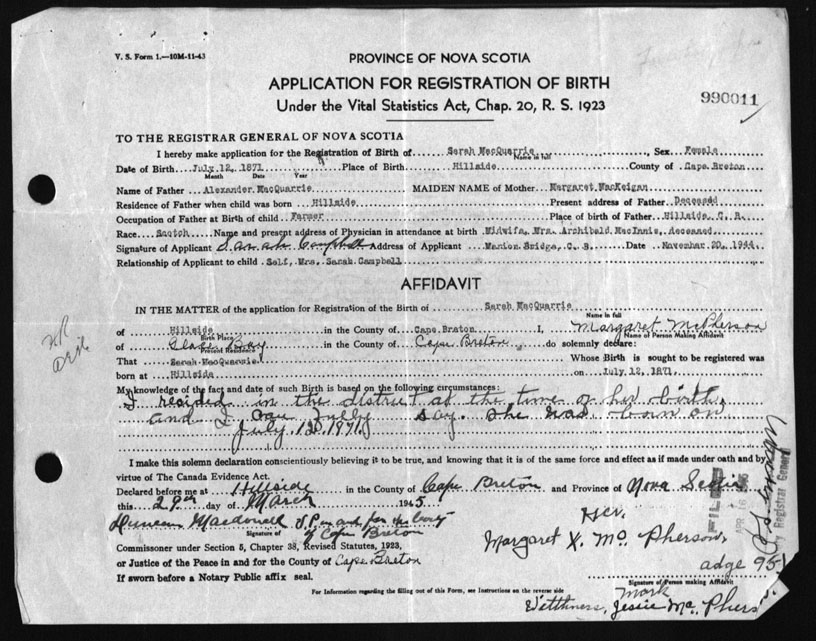 V. S. Form 1.—10M-11-43
PROVINCE OF NOVA SCOTIA
APPLICATION FOR REGISTRATION OF BIRTH
Under the Vital Statistics Act, Chap. 20, R. S. 1923
990011
TO THE REGISTRAR GENERAL OF NOVA SCOTIA
I hereby make application for the Registration of Birth of Sarah MacQuarrie Sex Female
Name in full
Date of Birth July 12, 1871 Place of Birth Hillside County of Cape Breton
Month Date Year
Name of Father Alexander MacQuarrie MAIDEN NAME of Mother Margaret MacKeigan
Residence of Father when child was born Hillside Present address of Father Deceased
Occupation of Father at Birth of child Farmer Place of birth of Father Hillside, C. B.
Race Scotch Name and present address of Physician in attendance at birth Midwife, Mrs. Archibald MacInnis, deceased.
Signature of Applicant Sarah Campbell Address of Applicant Marion Bridge, C. B. Date November 20, 1944.
Relationship of Applicant to child Self, Mrs. Sarah Campbell
AFFIDAVIT
IN THE MATTER of the application for Registration of the Birth of Sarah MacQuarrie
Name in full
of Hillside in the County of Cape Breton I, Margaret McPherson
Birth Place Name of Person Making Affidavit
of Glace Bay in the County of Cape Breton do solemnly declare:
Present Residence
That Sarah MacQuarrie Whose Birth is sought to be registered was
born at Hillside on July 12, 1871.
My knowledge of the fact and date of such Birth is based on the following circumstances:
I resided in the district at the time of her birth
and I can fully say she was born on
July 12, 1871.
I make this solemn declaration conscientiously believing it to be true, and knowing that it is of the same force and effect as if made under oath and by
virtue of The Canada Evidence Act.
Declared before me at Hillside in the County of Cape Breton and Province of Nova Scotia
this 29th day of March 1945
Duncan Macdonald J.P. in and for the County
Signature of
of Cape Breton
Commissioner under Section 5, Chapter 38, Revised Statutes, 1923,
or Justice of the Peace in and for the County of Cape Breton
If sworn before a Notary Public affix seal.
FILED
APR 16 1945
Registrar General
Her
Margaret X. Mc Pherson,
adge 95
Signature of Person making Affidavit
mark
For Information regarding the filling out of this Form, see Instructions on the reverse side
Witthness, Jessie Mc Pherson